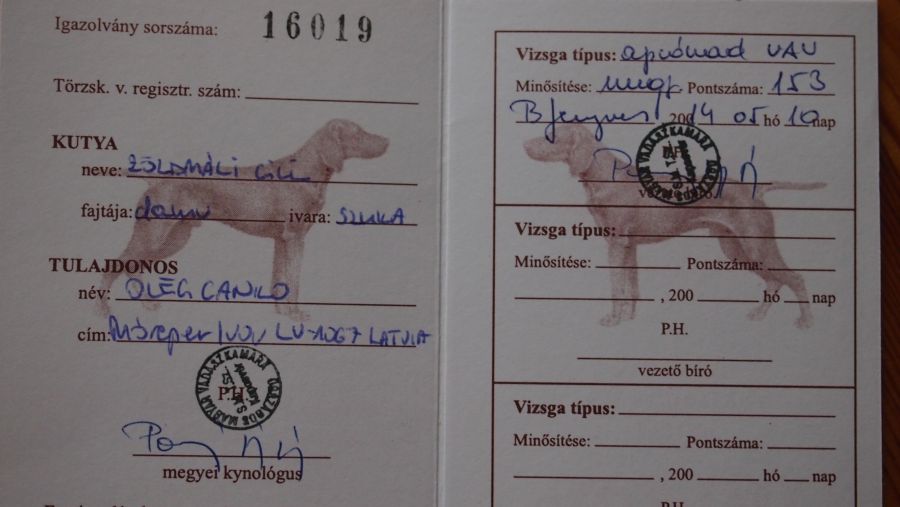 Igazolvány sorszáma: 16019
Törzsk. v. regisztr. szám:
KUTYA
neve: ZÖLDMÁLI CILI
fajtája: ivara: SZUKA
TULAJDONOS
név: OLEG
cím: LV-1067 LATVIA
ORSZÁGOS MAGYAR VADÁSZKAMARA
P.H.
megyei kynológus
Vizsga típus: apróvad VAV
Minősítése: Pontszáma: 153
200 14 05 hó 10 nap
ORSZÁGOS MAGYAR VADÁSZKAMARA
Vizsga típus:
Minősítése: Pontszáma:
, 200 hó nap
P.H.
vezető bíró
Vizsga típus:
Minősítése: Pontszáma:
, 200 hó nap
P.H.